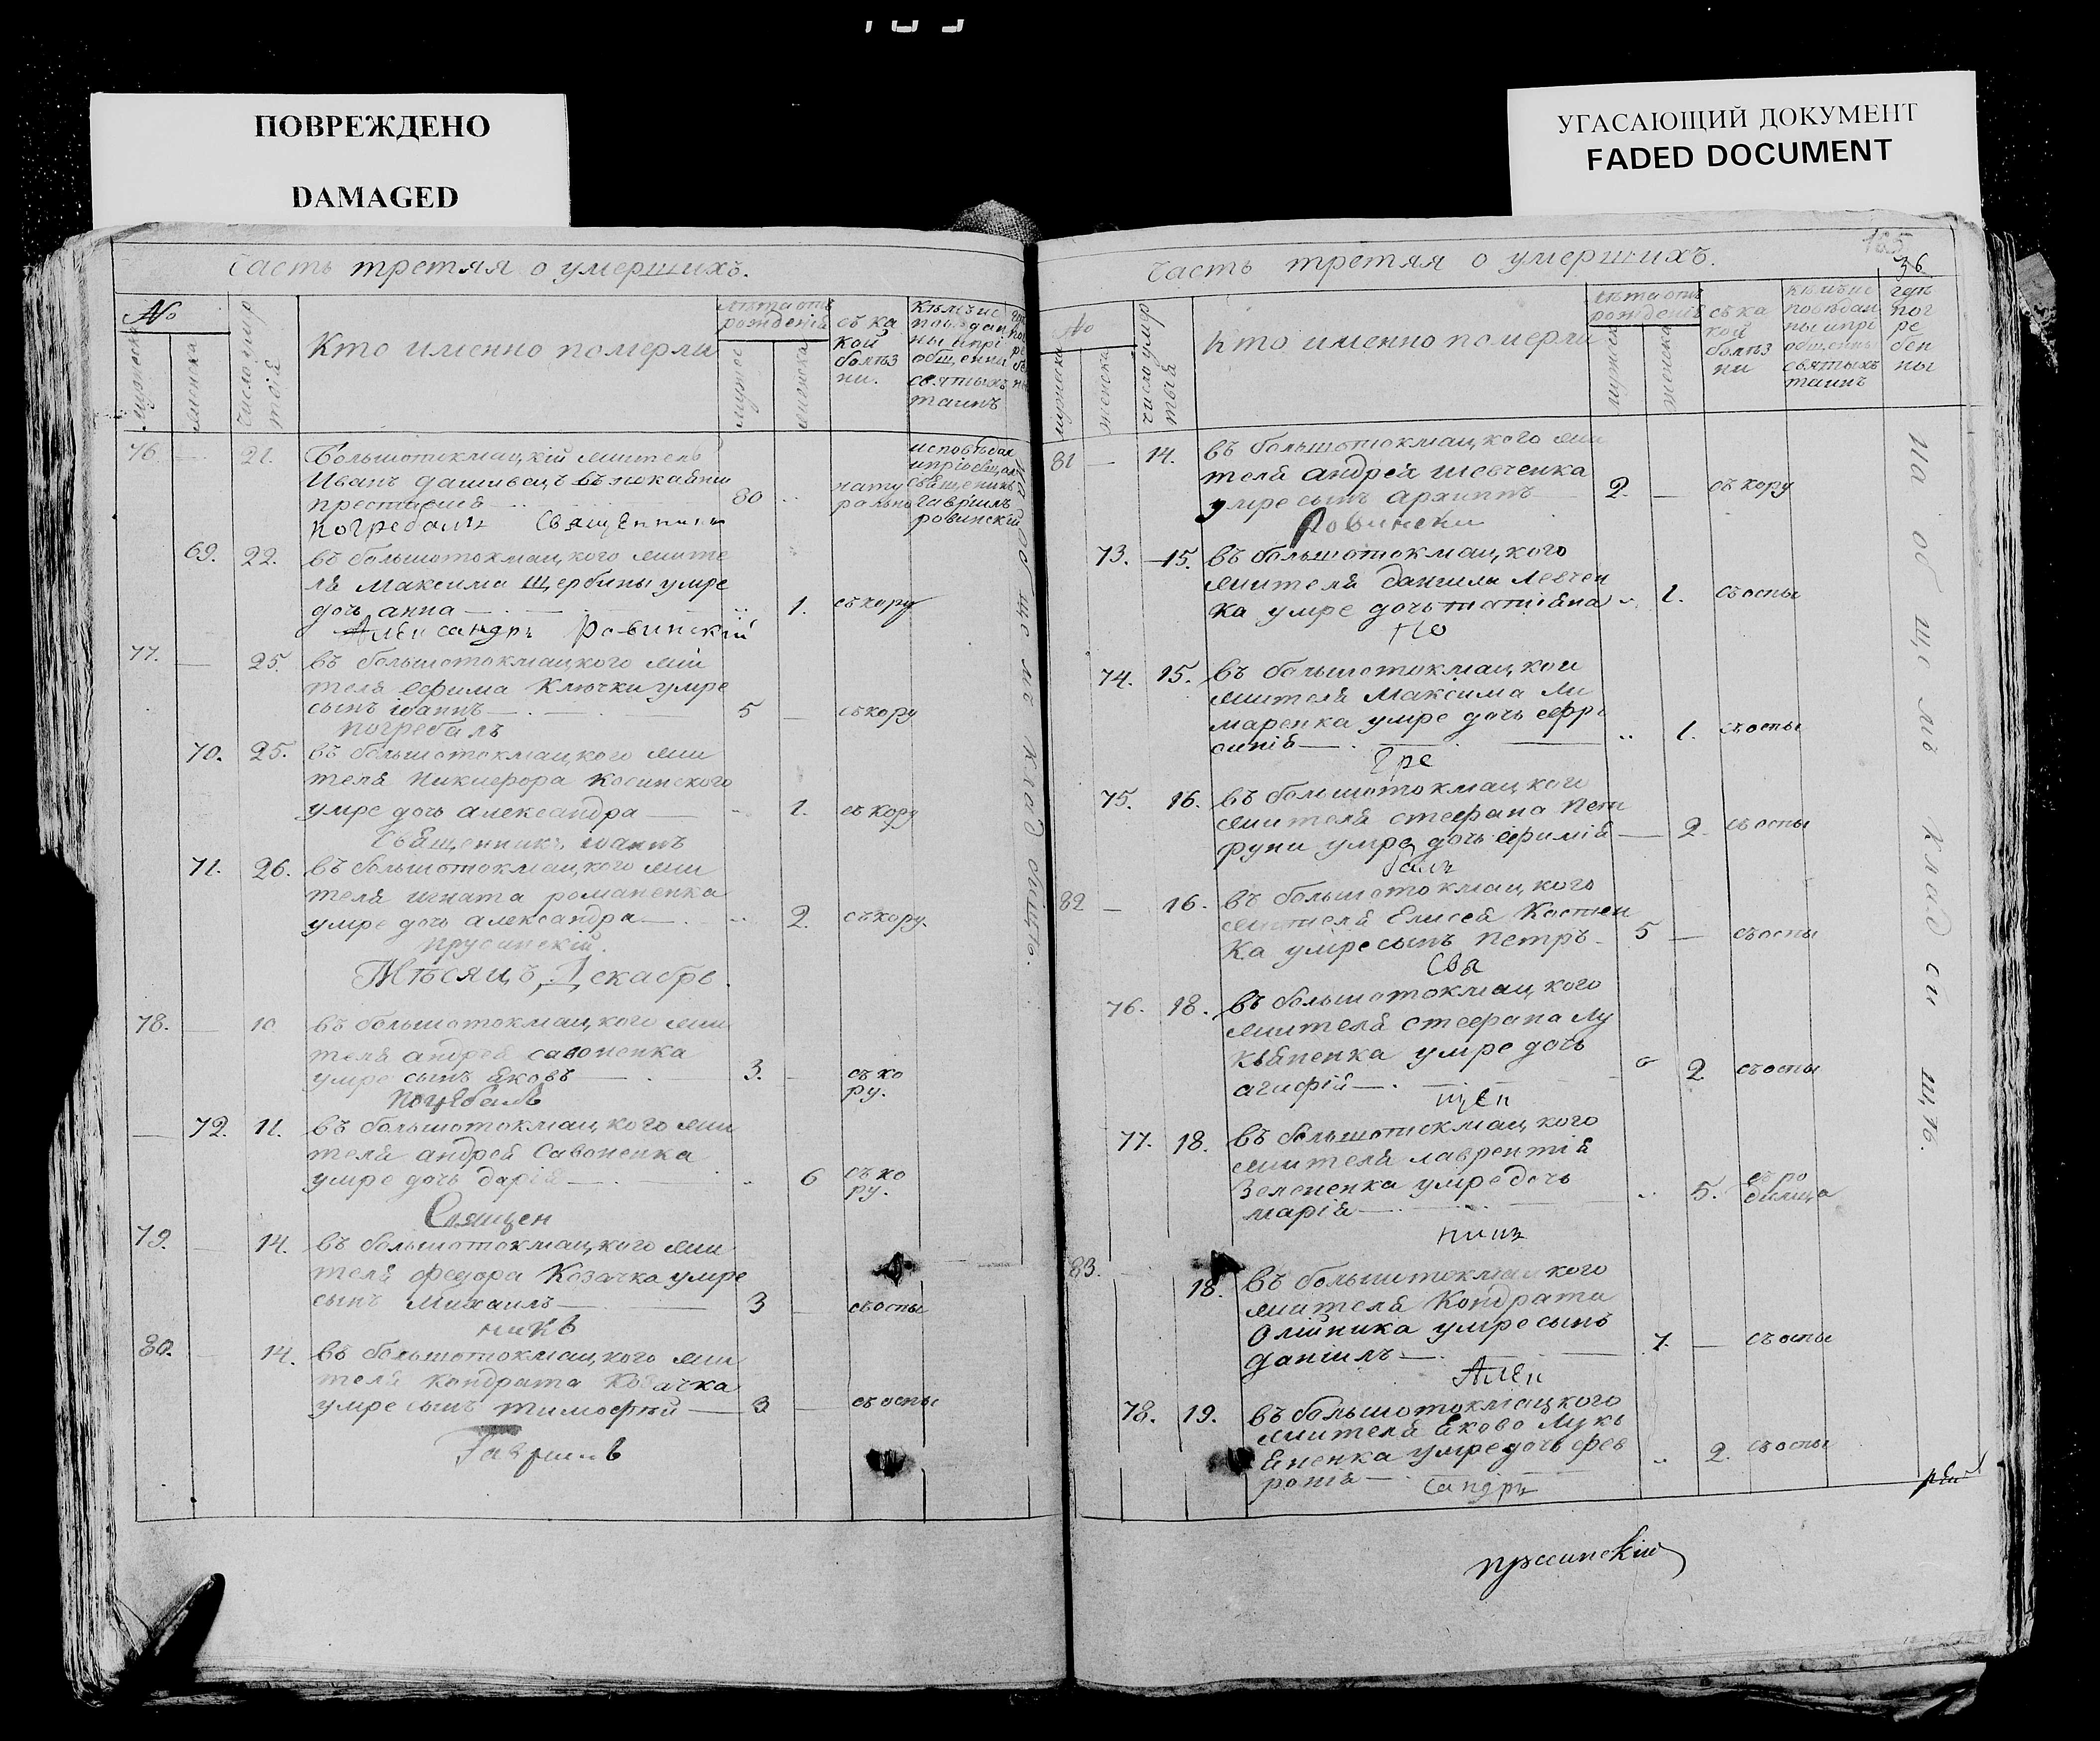 ПОВРЕЖДЕНО
DAMAGED
УГАСАЮЩИЙ ДОКУМЕНТ
FADED DOCUMENT
Часть третяя о умершихъ.
№
мужеска
женска
число умер
твія
Кто именно померли
лѣта отъ
рожденія
мужес
женска
съ ка
кой
болѣз
ни.
Кѣмъ ис
повѣдан
ны и прі
общены
святыхъ
таинъ
76 — 21. Большотокмацкій житель
Иванъ Дашивецъ въ покаяніи
преставися 80 нату
рально
исповѣдал
и пріобщал
священникъ
гаврiилъ
ровинскій
погребали Священники
69. 22. въ большотокмацкого жите
ля Максима Щербины умре
дочь анна — 1. съ кору
Александръ Ровинскій
77. — 25. въ большотокмацкого жи
теля ефима Ключки умре
сынъ иоаннъ — 5 — съ кору
погребалъ
70. 25. въ большотокмацкого жи
теля Никифора Косинского
умре дочь александра — 1. съ кору
Священникъ иоаннъ
71. 26. въ большотокмацкого жи
теля игната романенка
умре дочь александра — 2. съ кору.
прусинскій.
Мѣсяцъ Декабрь.
78. — 10 въ большотокмацкого жи
теля андрея савоненка
умре сынъ яковъ — 3. — съ ко
ру.
погребалъ
— 72. 11. въ большотокмацкого жи
теля андрея Савоненка
умре дочь дарія — 6 съ ко
ру.
Священ
79. — 14. въ большотокмацкого жи
теля федора Козачка умре
сынъ Михаилъ — 3 — съ оспы
никъ
80. — 14. въ большотокмацкого жи
теля кондрата Козачка
умре сынъ тимофѣй — 3 — съ оспы
Гаврiилъ
на общемъ кладбищѣ.
Часть третяя о умершихъ.
165
36
№
мужеска
женска
число умер
твія
Кто именно померли
лѣта отъ
рожденія
мужеск
женска
съ ка
кой
болѣз
ни
кѣмъ ис
повѣдан
ны и прі
общены
святыхъ
таинъ
гдѣ
пог
ре
бен
ны
81 — 14. въ большотокмацкого жи
теля андрея шевченка
умре сынъ архиппъ — 2. — съ кору
Ровински
73. — 15. въ большотокмацкого
жителя данiила Левчен
ка умре дочь татіана 1. съ оспы
по
74. 15. въ большотокмацкои
жителя Максима Ли
маренка умре дочь ефро
синія — 1. съ оспы
гре
75. 16. въ большотокмацкого
жителя стефана Пет
руни умре дочь ефимія — 2 съ оспы
балъ
82 — 16. въ большотокмацкого
жителя Елисея Костен
ка умре сынъ петръ 5 — съ оспы
Свя
76. 18. въ большотокмацкого
жителя стефана лу
кьяненка умре дочь
агафія — 2 съ оспы
щен
77. 18. въ большотокмацкого
жителя лаврентія
Зелененка умре дочь
марія — 5. съ ро
димца
никъ
83. 18. въ большотокмацкого
жителя Кондрата
Олійника умре сынъ
даніилъ — 7. — съ оспы
Алек
78. 19. въ большотокмацкого
жителя яково лукь
яненка умре дочь фев
ронія — 2. съ оспы
сандръ
на общемъ кладбищѣ.
прусинскій